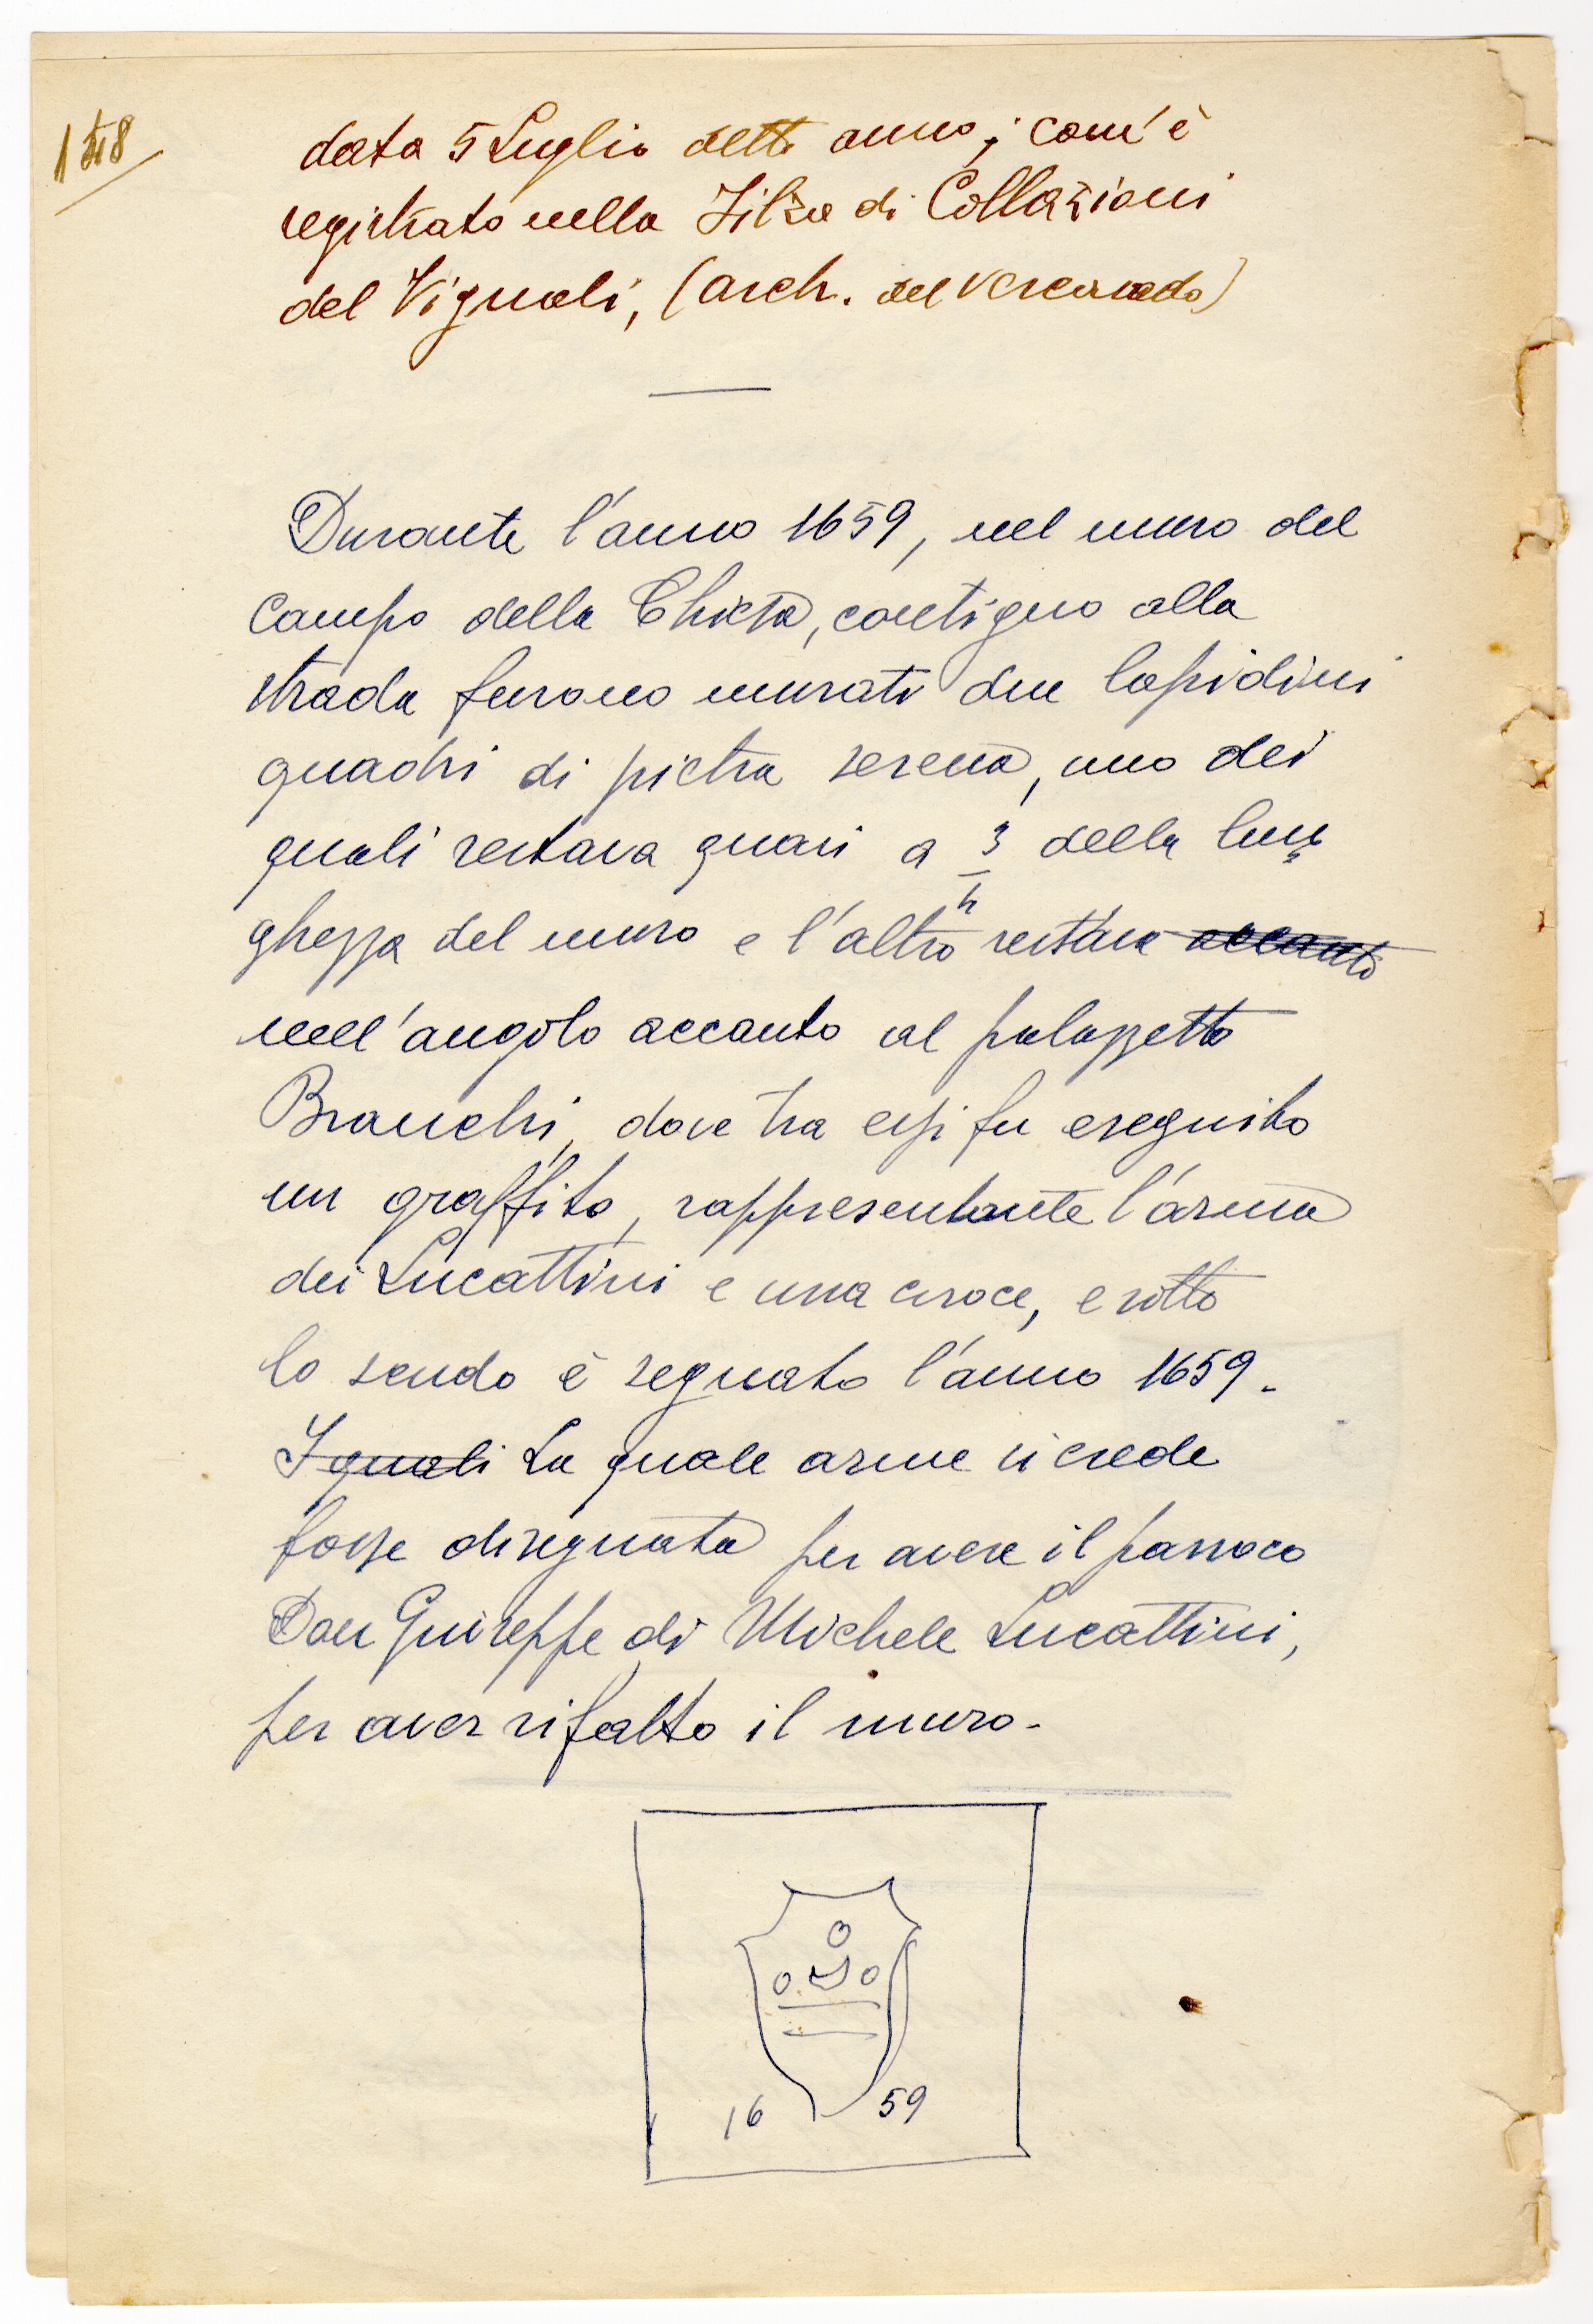 158
data 5 Luglio detto anno; com'è
registrato nella Filza di Collazioni
del Vignali, (arch. del Vescovado)
Durante l'anno 1659, nel muro del
Campo della Chiesa, contiguo alla
strada furono murati due lapidini
quadri di pietra serena, uno dei
quali restava quasi a 3/4 della lun
ghezza del muro e l'altro restava accanto
nell'angolo accanto al palazzetto
Branchi, dove tra essi fu eseguito
un graffito, rappresentante l'arma
dei Lucattini e una croce, e sotto
lo scudo è segnato l'anno 1659.
I quali La quale arme si crede
fosse disegnata per avere il parroco
Don Giuseppe di Michele Lucattini,
per aver rifatto il muro.
16 59